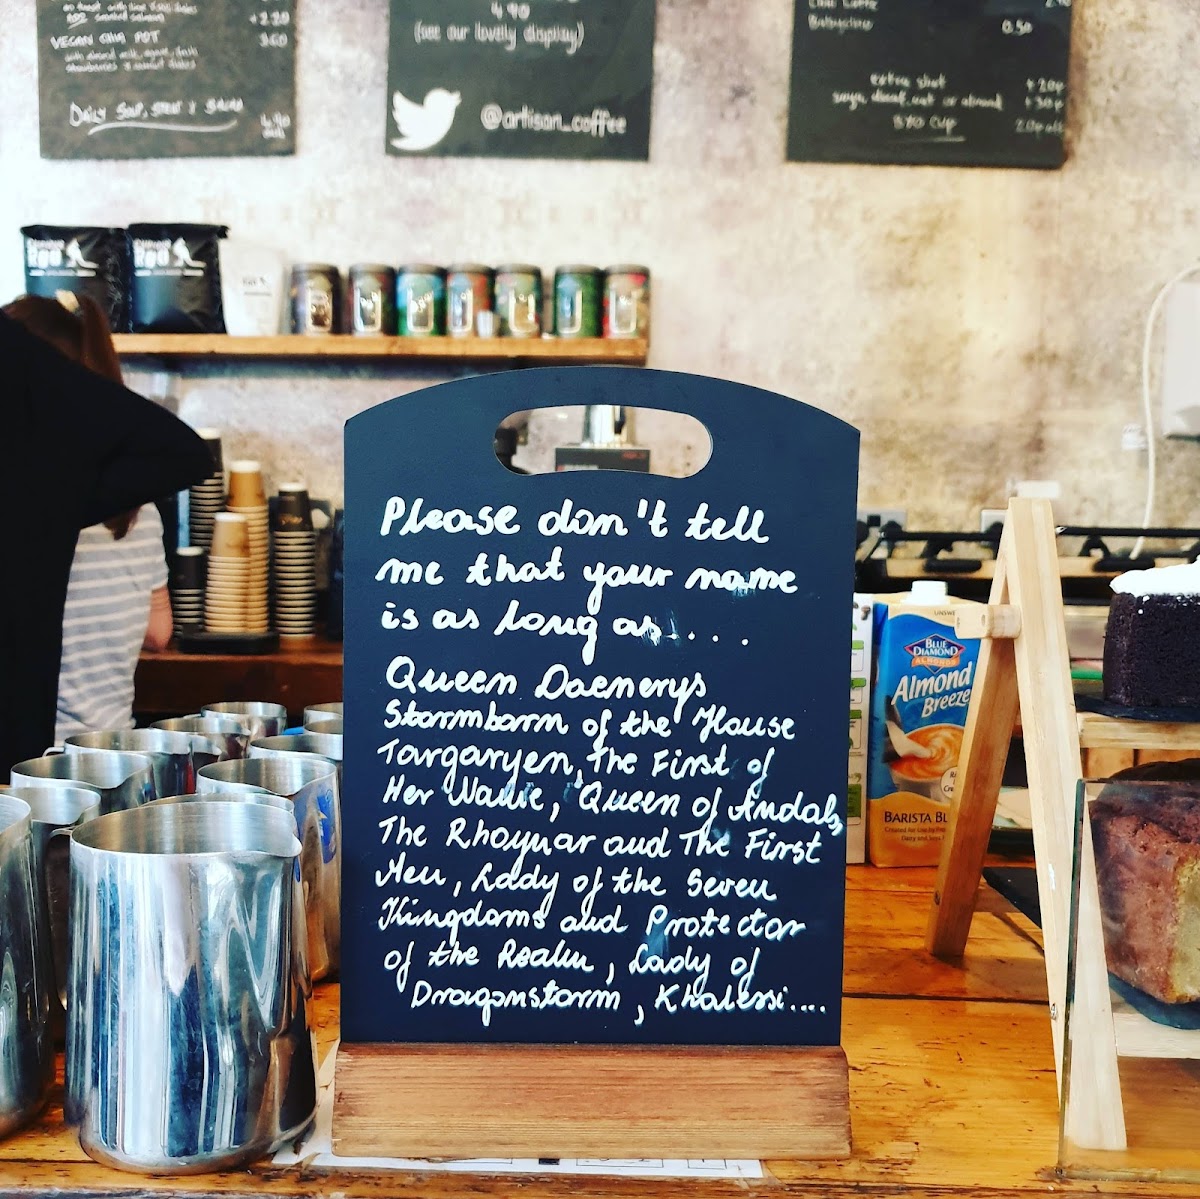 +2.20
VEGAN CHIA POT
3.60
DAILY SOUP, STEW & SALAD
4.90
(see our lovely display)
@artisan_coffee
Babyccino
0.50
extra shot
+20p
soya, decaf, oat or almond
+30p
Red
Red
Please don't tell
me that your name
is as long as....
Queen Daenerys
Stormborn of the House
Targaryen, The First of
Her Name, Queen of Andals,
The Rhoynar and The First
Men, Lady of the Seven
Kingdoms and Protector
of the Realm, Lady of
Dragonstorm, Khalessi....
UNSWE
BLUE DIAMOND
ALMONDS
Almond
Breeze
BARISTA BL